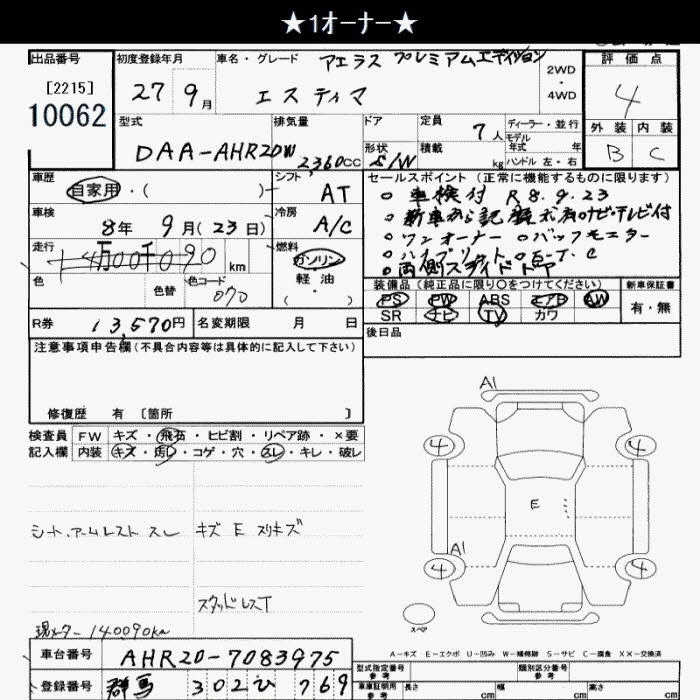 ★1オーナー★
出品番号 初度登録年月 車名・グレード アエラス プレミアムエディション 評価点
[2215] 10062 27 9月 エスティマ 2WD・4WD 4
型式 排気量 ドア 定員 7人 ディーラー・並行 外装 内装
DAA-AHR20W 2360cc 形状 S/W 積載 kg モデル年式 年 ハンドル 左・右 B C
車歴 自家用・( ) シフト AT セールスポイント (正常に機能するものに限ります)
車検 8年 9月(23日) 冷房 A/C
○車検付 R8.9.23
○新車から記録簿有 ナビ・テレビ付
○ワンオーナー ○バックモニター
○ハイブリット ○E-T.C
○両側スライドドア
走行 14万00千090km 燃料 ガソリン 軽油 ・ ( )
色 色替 色コード 070
装備品 (純正品に限り○をつけてください) 新車保証書
PS PW ABS エアB AW 有・無
SR ナビ TV カワ
R券 13,570円 名変期限 月 日 後日品
注意事項申告欄(不具合内容等は具体的に記入して下さい)
修復歴 有 [箇所 ]
検査員 FW キズ・飛石・ヒビ割・リペア跡・×要
記入欄 内装 キズ・汚レ・コゲ・穴・スレ・キレ・破レ
A1
4 4
E
A1
4 4
スペア
シート、アームレスト スレ キズ E スリキズ
スタッドレスT
現メーター 140090km
A-キズ E-エクボ U-凹み W-補修跡 S-サビ C-腐食 XX-交換済
車台番号 AHR20-7083975
型式指定番号 参考 類別区分番号 参考
登録番号 群馬 302ひ 769
車庫証明用 参考 長さ cm 幅 cm 高さ cm